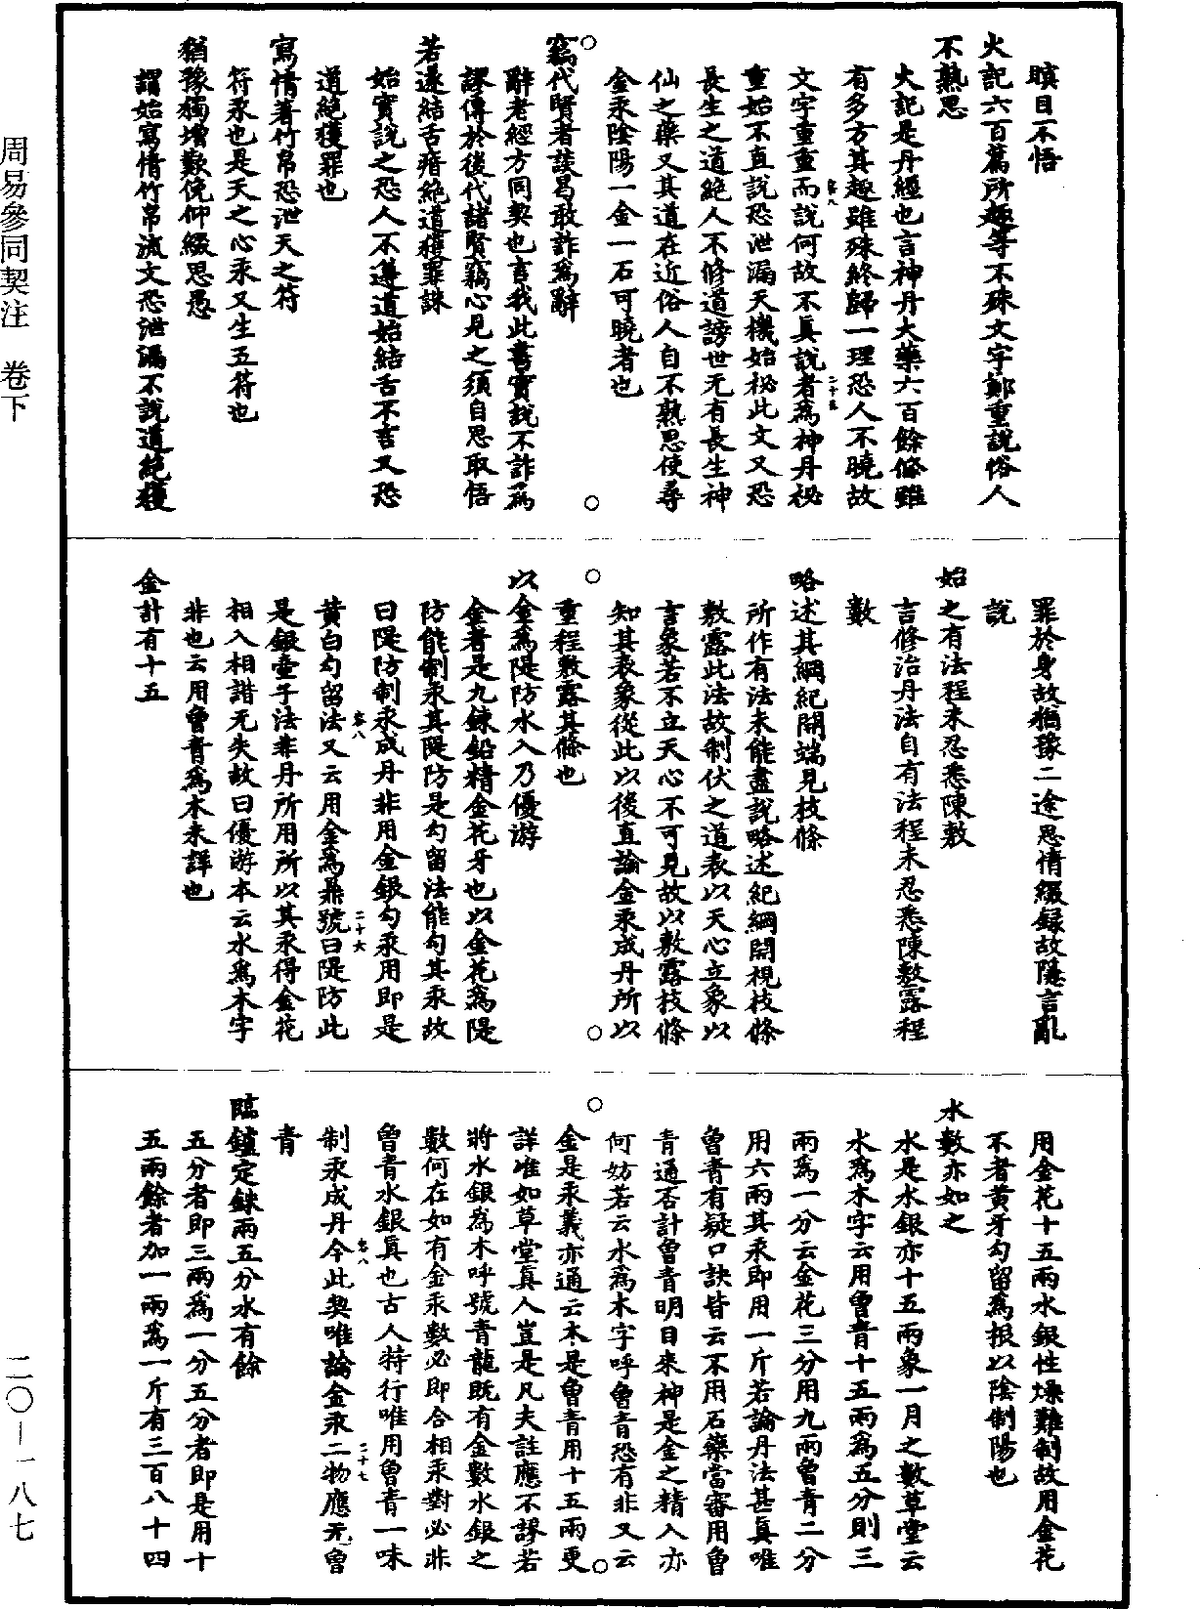 瞋目不悟
火記六百篇所趣等不殊文字鄭重說俗人
不熟思
火記是丹經也言神丹大藥六百餘條雖
有多方其趣雖殊終歸一理恐人不曉故
文字重重而說何故不真說者為神丹祕
重始不直說恐泄漏天機始祕此文又恐
長生之道絕人不修道謗世无有長生神
仙之藥又其道在近俗人自不熟思使尋
金汞陰陽一金一石可曉者也
竊代賢者談曷敢詐為辭
辭老經方同契也言我此書實說不詐為
謬傳於後代諸賢竊心見之須自思取悟
若遂結舌瘖絕道獲罪誅
始實說之恐人不遵道始結舌不言又恐
道絕獲罪也
寫情著竹帛恐泄天之符
符汞也是天之心汞又生五符也
猶豫獨增歎俛仰綴思愚
謂始寫情竹帛流文恐泄漏不說道絕獲
罪於身故猶豫二途思情綴録故隱言亂
說
始之有法程未忍悉陳敷
言修治丹法自有法程未忍悉陳敷露程
數
略述其綱紀開端見技條
所作有法未能盡說略述紀綱開視技條
敷露此法故制伏之道表以天心立象以
言象若不立天心不可見故以敷露技條
知其表象從此以後直論金汞成丹所以
重程敷露其條也
以金為隄防水入乃優游
金者是九鍊鉛精金花牙也以金花為隄
防能制汞其隄防是勾留法能勾其汞故
曰隄防制汞成丹非用金銀勾汞用即是
黃白勾留法又云用金為鼎號曰隄防此
是銀壺子法非丹所用所以其汞得金花
相入相諧无失故曰優游本云水為木字
非也云用曾青為木未詳也
金計有十五
用金花十五兩水銀性燥難制故用金花
不者黃牙勾留為根以陰制陽也
水數亦如之
水是水銀亦十五兩象一月之數草堂云
水為木字云用曾青十五兩為五分則三
兩為一分云金花三分用九兩曾青二分
用六兩其汞即用一斤若論丹法甚真唯
曾青有疑口訣皆云不用石藥當審用曾
青通否計曾青明目來神是金之精入亦
何妨若云水為木字呼曾音恐有非又云
金是汞義亦通云木是曾青用十五兩更
詳准如草堂真人豈是凡夫註應不謬若
將水銀為木呼號青龍既有金數水銀之
數何在如有金汞數必即合相汞對必非
曾青水銀真也古人荐行唯用曾青一味
制汞成丹今此契唯論金汞二物應无曾
青
臨鑪定銖兩五分水有餘
五分者即三兩為一分五分者即是用十
五兩餘者加一兩為一斤有三百八十四
周易參同契注　卷下
二〇—一八七
容八
二十五
容八
二十六
容八
二十七